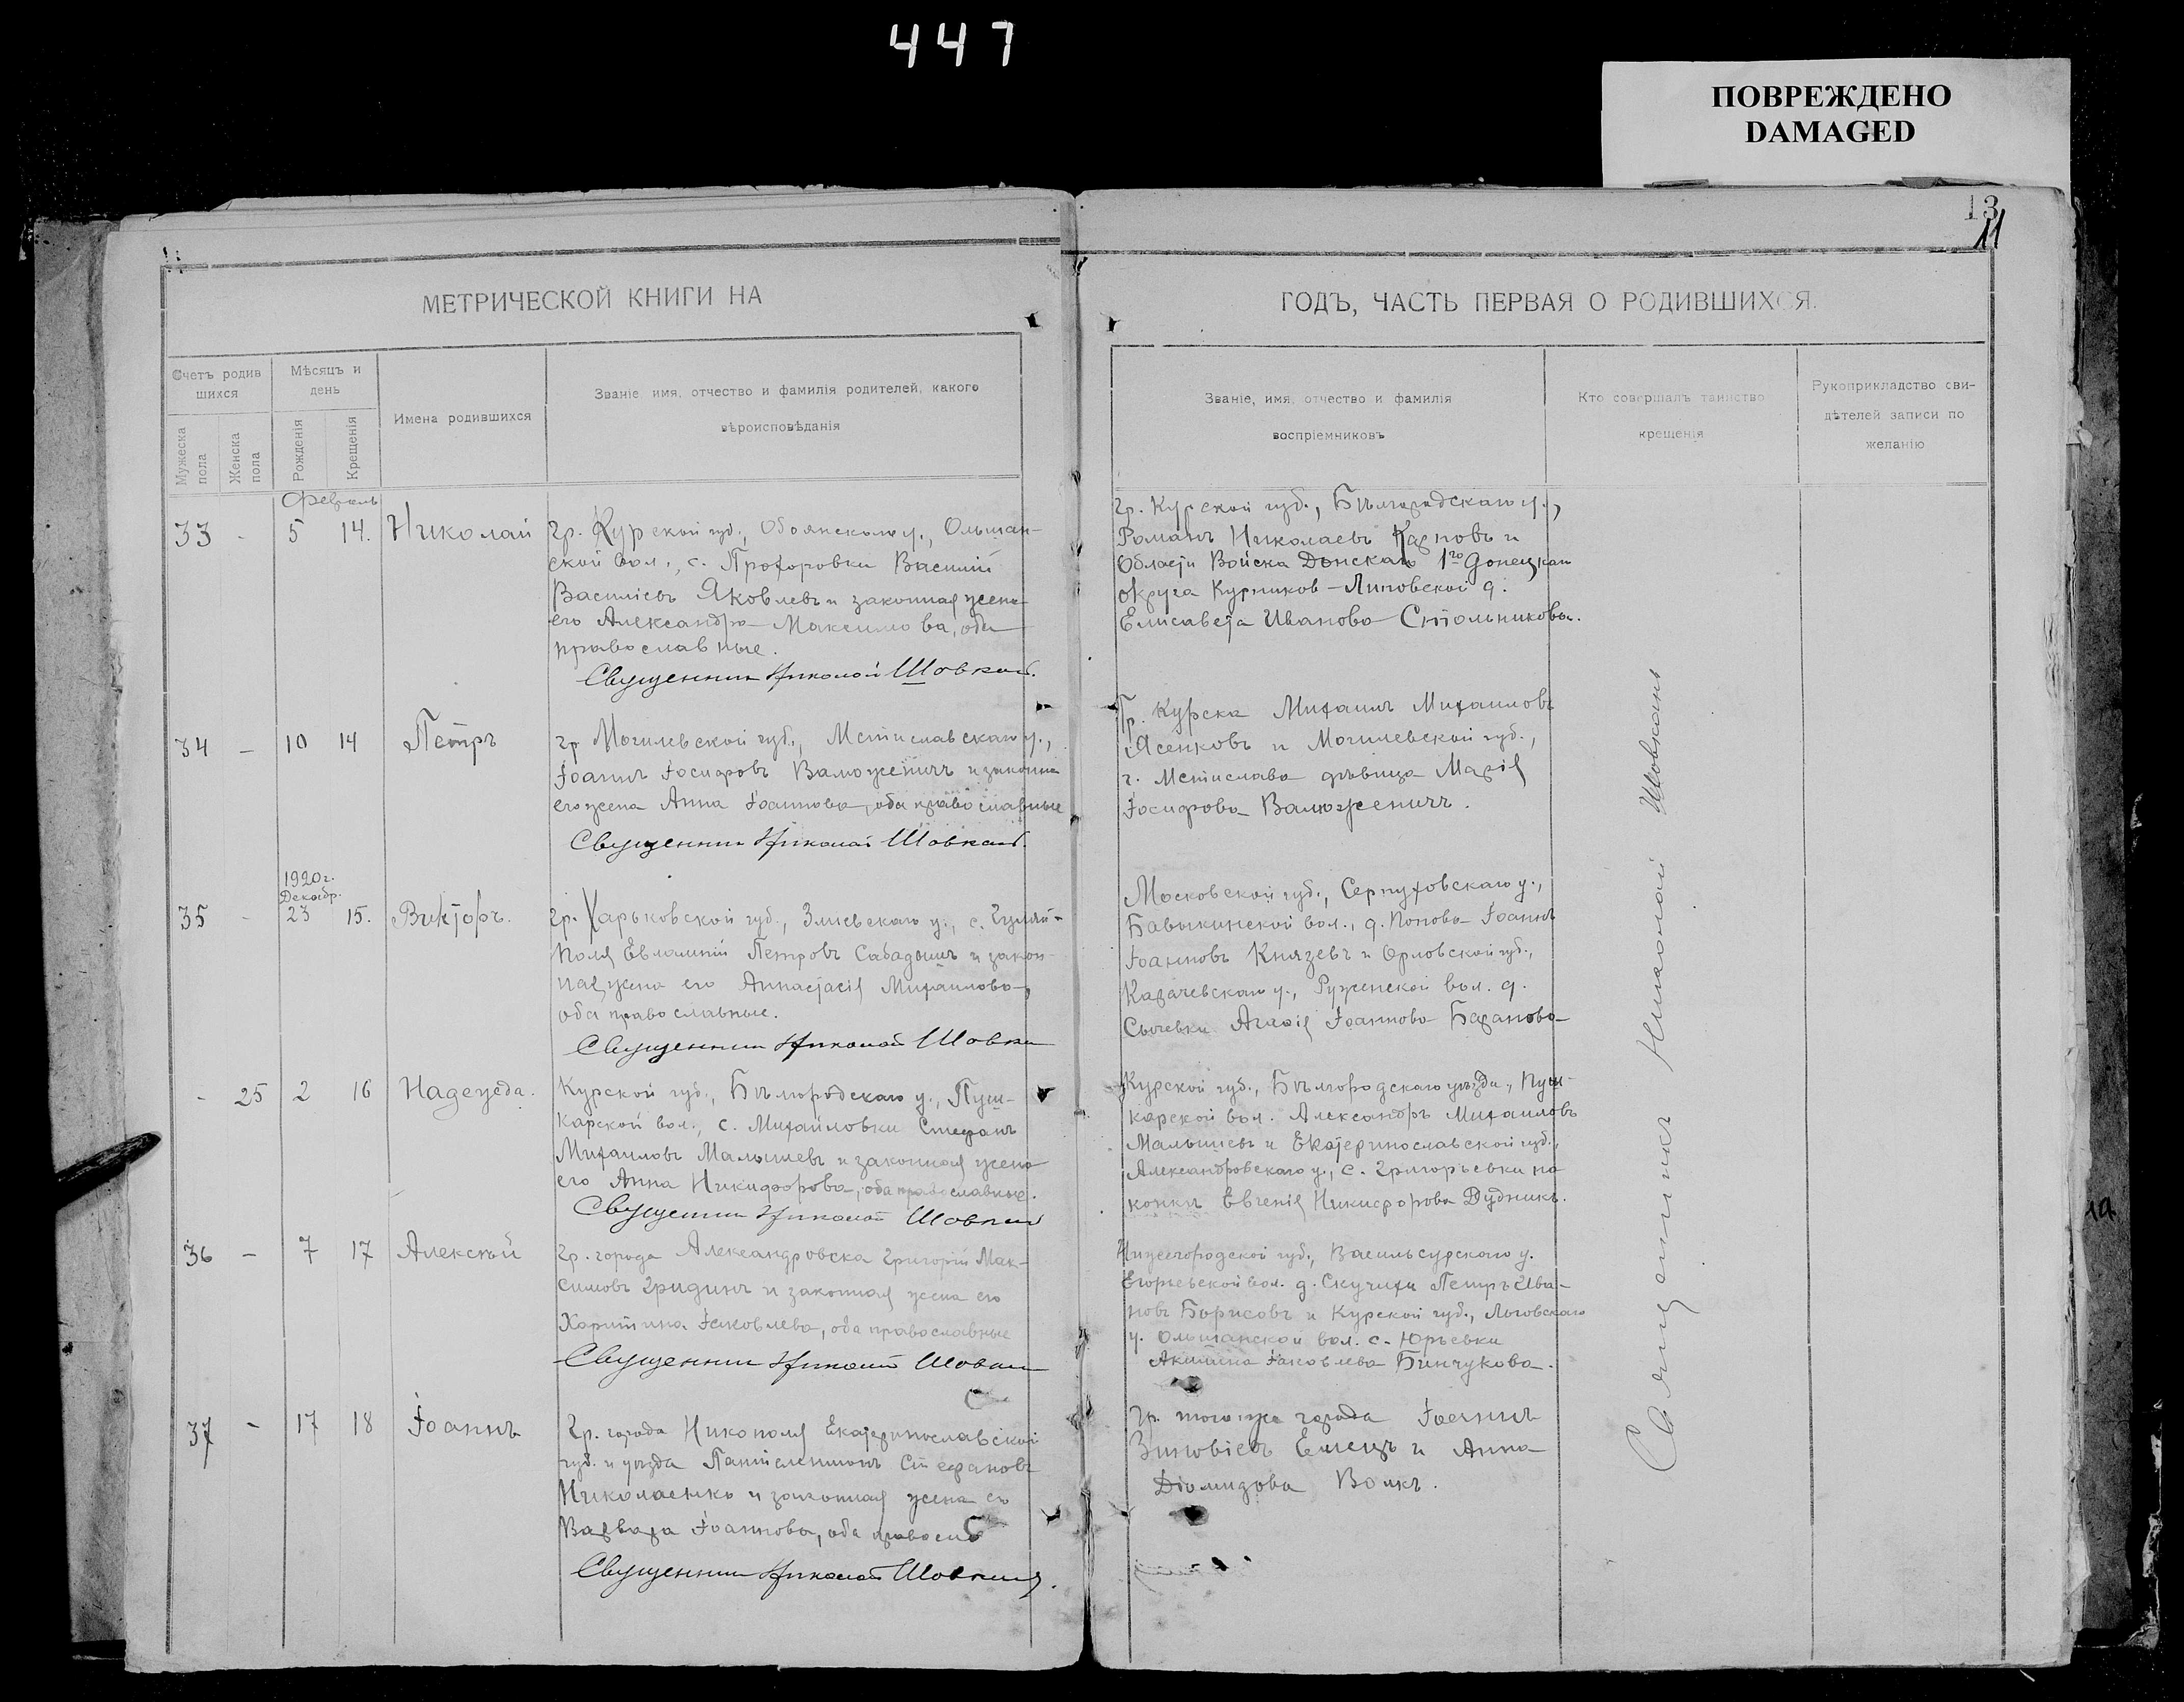 447
ПОВРЕЖДЕНО
DAMAGED
13
11
МЕТРИЧЕСКОЙ КНИГИ НА
Счетъ родив
шихся
Мужеска
пола
Женска
пола
Мѣсяцъ и
день
Рожденія
Крещенія
Имена родившихся
Званіе, имя, отчество и фамилія родителей, какого
вѣроисповѣданія
ГОДЪ, ЧАСТЬ ПЕРВАЯ О РОДИВШИХСЯ.
Званіе, имя, отчество и фамилія
воспріемниковъ
Кто совершалъ таинство
крещенія
Рукоприкладство сви-
дѣтелей записи по
желанію
Февраль
33 - 5 14. Николай
гр. Курской губ., Обоянскаго у., Ольшан-
ской вол., с. Прохоровки Василій
Василіевъ Яковлевъ и законная жена
его Александра Максимова, оба
православные.
Священник Николай Шовкан.
гр. Курской губ., Бѣлгородскаго у.,
Романъ Николаевъ Карповъ и
Области Войска Донскаго 1го Донецкаго
округа Курников-Липовской д.
Елисавета Иванова Стольникова.
34 - 10 14 Петръ
гр. Могилевской губ., Мстиславскаго у.,
Іоаннъ Іосифовъ Валюженичъ и законна
его жена Анна Іоаннова, оба православные
Священник Николай Шовкан.
Гр. Курска Михаилъ Михаиловъ
Ясенковъ и Могилевской губ.,
г. Мстислава дѣвица Марія
Іосифова Валюженичъ.
1920 г.
Декабр.
35 - 23 15. Викторъ.
гр. Харьковской губ., Зміевскаго у., с. Гуляй-
Поля Евлампій Петровъ Сабадашъ и закон-
ная жена его Анастасія Михаилова,
оба православные.
Священник Николай Шовкан
Московской губ., Серпуховскаго у.,
Бавыкинской вол., д. Попова Іоаннъ
Іоанновъ Князевъ и Орловской губ.,
Карачевскаго у., Руженской вол. д.
Сычевки Агафія Іоаннова Баранова
- 25 2 16 Надежда.
Курской губ., Бѣлгородскаго у., Пуш-
карской вол., с. Михайловки Стефанъ
Михаиловъ Малышевъ и законная жена
его Анна Никифорова, оба православные.
Священник Николай Шовкан
Курской губ., Бѣлгородскаго уѣзда, Пуш-
карской вол. Александръ Михаиловъ
Малышевъ и Екатеринославской губ.,
Александровскаго у., с. Григорьевки на
конкѣ Евгенія Никифорова Дудникъ.
36 - 7 17 Алексѣй
гр. города Александровска Григорій Мак-
симовъ Гридинъ и законная жена его
Харитина Іаковлева, оба православные
Священник Николай Шовкан
Нижегородской губ., Васильсурскаго у.
Егорьевской вол. д. Скучихи Петръ Ива-
новъ Борисовъ и Курской губ., Льговскаго
у. Ольшанской вол. с. Юрьевки
Акилина Іаковлева Бинчукова.
37 - 17 18 Іоаннъ
Гр. города Никополя Екатеринославской
губ. и уѣзда Пантелеимонъ Стефановъ
Николаенко и законная жена его
Варвара Іоаннова, оба правосла
Священник Николай Шовкан.
Гр. того же города Іоаннъ
Зиновіевъ Емецъ и Анна
Діомидова Волкъ.
Священникъ Николай Шовканъ